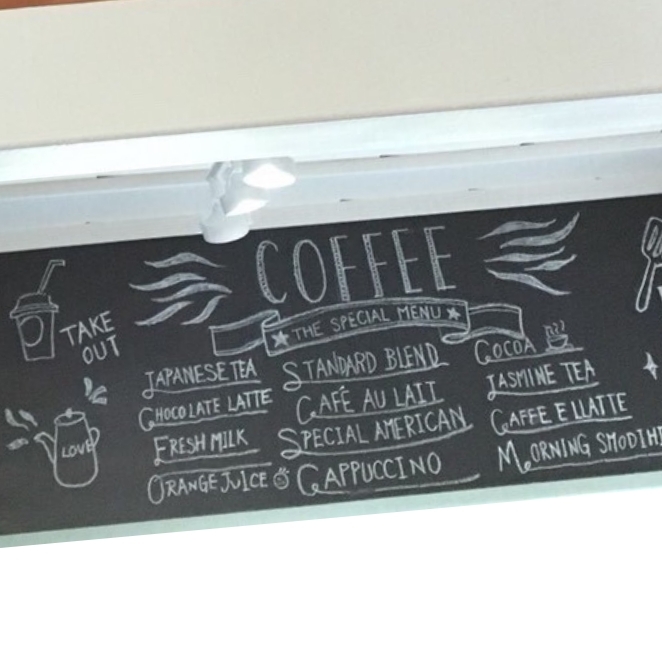 COFFEE
THE SPECIAL MENU
TAKE
OUT
LOVE
JAPANESE TEA
CHOCOLATE LATTE
FRESH MILK
ORANGE JUICE
STANDARD BLEND
CAFÉ AU LAIT
SPECIAL AMERICAN
CAPPUCCINO
COCOA
JASMINE TEA
CAFFE E LLATTE
MORNING SMODIHE